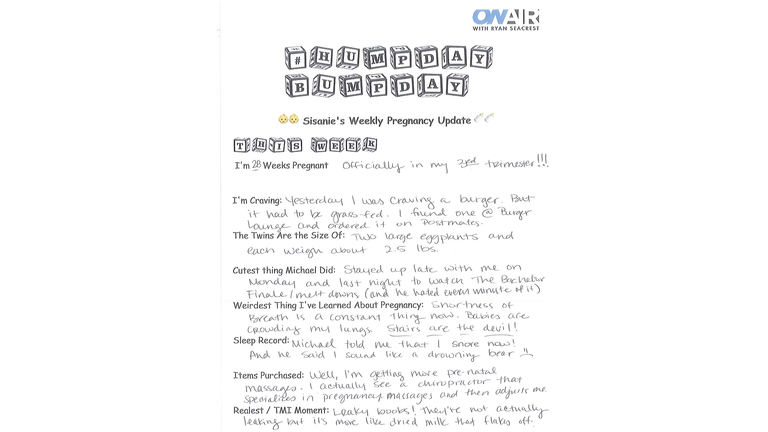 ON AIR
WITH RYAN SEACREST
#HUMPDAY
BUMPDAY
Sisanie's Weekly Pregnancy Update
THIS WEEK
I'm 28 Weeks Pregnant Officially in my 3rd trimester!!!
I'm Craving: Yesterday I was craving a burger. But
it had to be grass-fed. I found one @ Burger
Lounge and ordered it on Postmates.
The Twins Are the Size Of: Two large eggplants and
each weigh about 2.5 lbs.
Cutest thing Michael Did: Stayed up late with me on
Monday and last night to watch The Bachelor
Finale/melt downs (and he hated every minute of it)
Weirdest Thing I've Learned About Pregnancy: Shortness of
Breath is a constant thing now. Babies are
crowding my lungs. Stairs are the devil!
Sleep Record: Michael told me that I snore now!
And he said I sound like a drowning bear
Items Purchased: Well, I'm getting more pre-natal
massages. I actually see a chiropractor that
specializes in pregnancy massages and then adjusts me
Realest / TMI Moment: Leaky boobs! They're not actually
leaking but it's more like dried milk that flakes off.